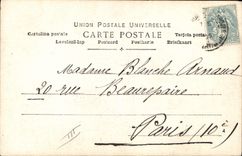 UNION POSTALE UNIVERSELLE
CARTE POSTALE
Cartolina postale
Tarjeta postal
Levelező-lap Postcard Postkarte Briefkaart
Madame Blanche Arnaud
20 rue Beaurepaire
Paris (10e)